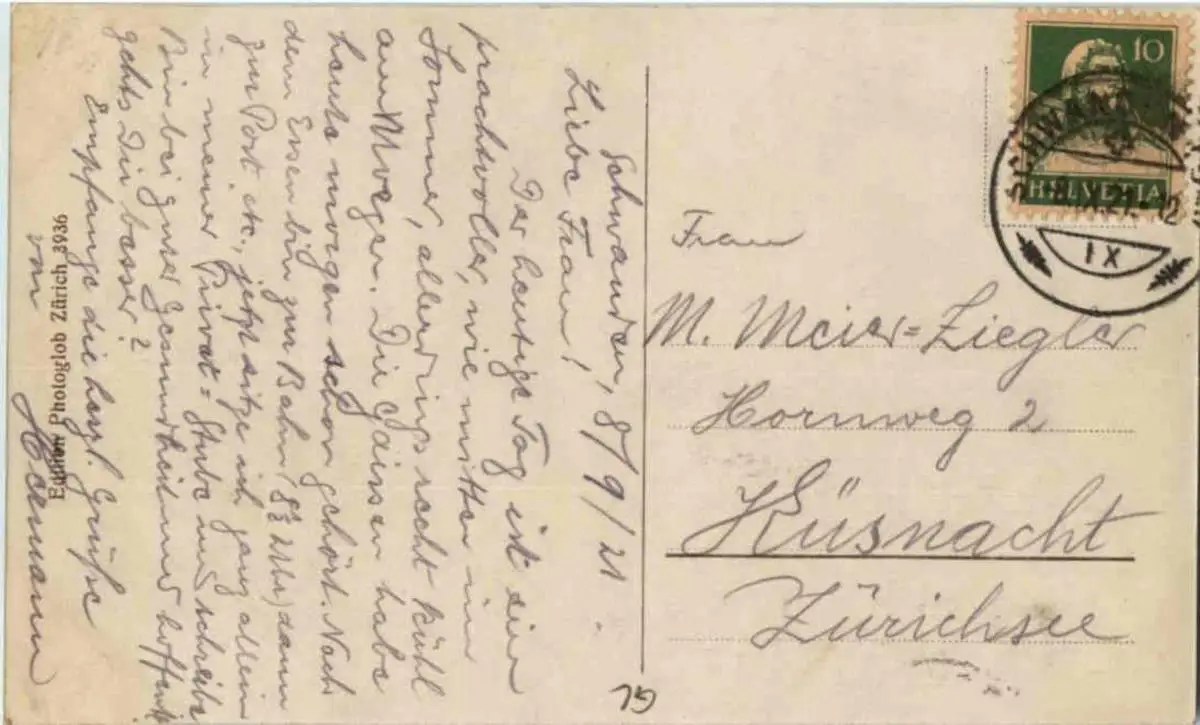 Schwanden, 8/9/21.
Liebe Frau!
Der heutige Tag ist ein
prachtvoller, wie mitten im
Sommer, allerdings recht kühl
am Morgen. Die Gaissen habe
heute morgen schon gehört. Nach
dem Essen bin zur Bahn (8½ Uhr) dann
zur Post etc., jetzt sitze ich ganz allein
in meiner Privat=Stube und schreibe
Bin bei guter Gesundheit und hoffentl.
gehts Dir besser?
Empfange die herzl. Grüße
von
Hermann
Edition Photoglob Zürich 3936
Frau
M. Meier=Ziegler
Hornweg 2
Küsnacht
Zürichsee
GL
10
HELVETIA
SCHWANDEN
8. IX. 21. 12
IX